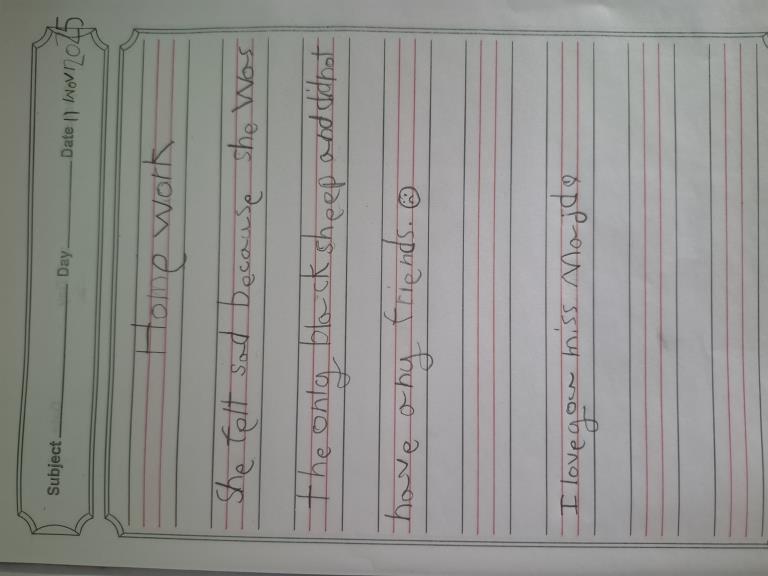 Subject Day Date 11 Nov 2025
Home work
She felt sad because she was
the only black sheep and did not
have any friends. ☹
I love you miss Majda